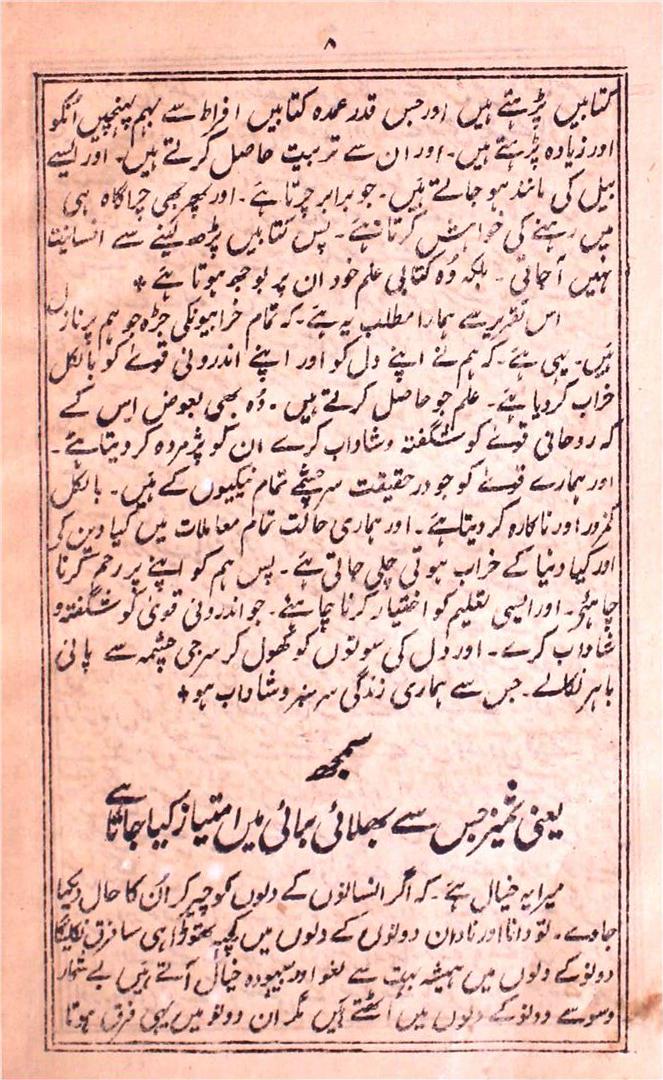 ۸
کتابیں پڑہتے ہیں اور جس قدر عمدہ کتابیں افراط سے بہم پہنچیں اُنکو
اور زیادہ پڑہتے ہیں۔ اور ان سے تربیت حاصل کرتے ہیں۔ اور ایسے
بیل کی مانند ہو جاتے ہَیں۔ جو برابر چرتا ہَے۔ اور پھر بھی چراگاہ ہی
میں رہنے کی خواہش کرتا ہَے۔ پس کتابیں پڑھ لینے سے انسانیت
نہیں آجاتی۔ بلکہ وُہ کتابی علم خود ان پر بوجھ ہوتا ہَے *
اس تقریر سے ہمارا مطلب یہ ہَے۔ کہ تمام خرابیونکی جڑہ جو ہم پر نازل
ہَیں۔ یہی ہَے۔ کہ ہم نے اپنے دل کو اور اپنے اندرونی قوےٰ کو بالکل
خراب کر دیا ہَے۔ علم جو حاصل کرتے ہیں۔ وُہ بھی بعوض اِس کے
کہ روحانی قوےٰ کو شگفتہ و شاداب کرے ان کو پژمردہ کر دیتا ہَے۔
اور ہمارے قوےٰ کو جو درحقیقت سرچشمے تمام نیکیوں کے ہَیں۔ بالکل
کمزور اور ناکارہ کر دیتا ہَے۔ اور ہماری حالت تمام معاملات میں کیا دین کے
اور کیا دنیا کے خراب ہوتی چلی جاتی ہَے۔ پس ہم کو اپنے پر رحم کرنا
چاہئے۔ اور ایسی تعلیم کو اختیار کرنا چاہئے۔ جو اندرونی قویٰ کو شگفتہ و
شاداب کرے۔ اور دل کی سوتوں کو کھول کر سرجی چشمہ سے پانی
باہر نکالے۔ جس سے ہماری زندگی سرسبز و شاداب ہو *
سمجھ
یعنی تمیز جس سے بھلائی برائی میں امتیاز کیا جاتا ہے
میرا یہ خیال ہَے۔ کہ اگر انسانوں کے دلوں کو چیر کر اُن کا حال دیکھا
جاوے۔ تو دانا اور نادان دونوں کے دلوں میں کچھ تھوڑا ہی سا فرق نکلیگا
دونو کے دلوں میں ہمیشہ بہت سے لغو اور بیہودہ خیال آتے ہَیں بے شمار
وسوسے دونو کے دلوں میں اُٹھتے ہَیں مگر ان دونو میں یہی فرق ہوتا